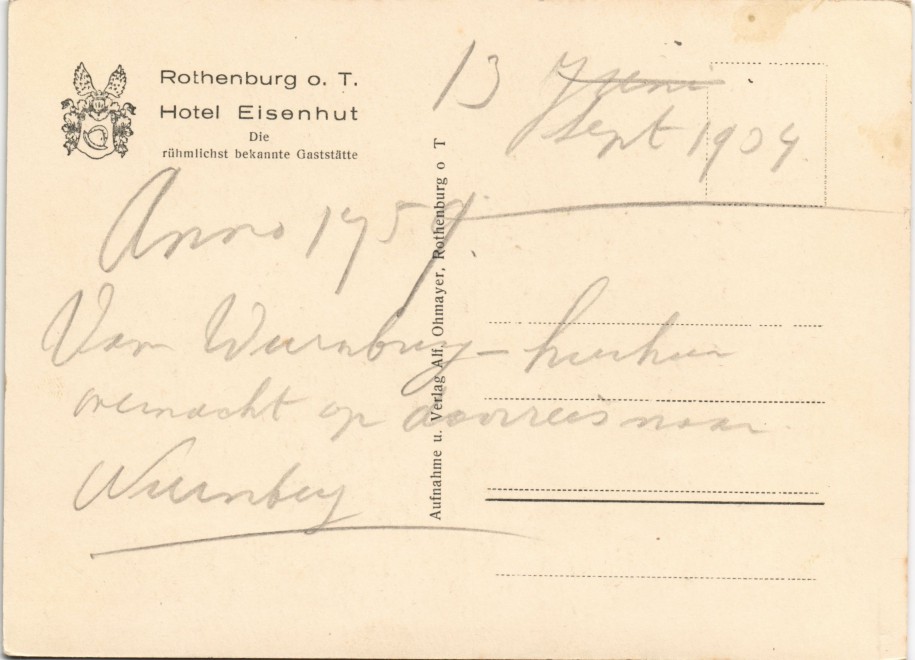 Rothenburg o. T.
Hotel Eisenhut
Die
rühmlichst bekannte Gaststätte
13 Juni
Sept 1904
Anno 1959
Van Wurnburg – hierheen
overnacht op doorreis naar
Nurnberg
Aufnahme u. Verlag Alf. Ohmayer, Rothenburg o T